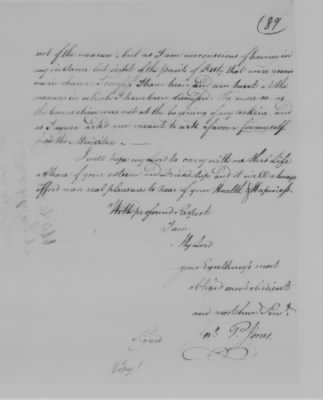 (89
not of the measure; but as I am unconscious of having in
any instance lost sight of the points of Duty, that were
in charge. I confess I have been and am hurt at the
manner in which I have been The more so, as
the was not at the of my seeking, and
as I never asked nor meant to ask a favour for myself
from this Minister.
I will hope my Lord to carry with me thro' Life
a share of your esteem and Friendship and it will always
afford me real pleasure to hear of your Health & Happiness.
With profound Respect
I am
My Lord
your Excellency's most
obliged most obedient
and most humb Servt.
Jno P. Jones
Signed
Copy